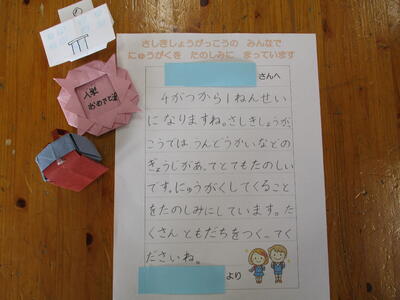 入学
おめでとう
さしきしょうがっこうの みんなで
にゅうがくを たのしみに まっています
さんへ
4がつから1ねんせい
に なりますね。さしきしょうが、
こうでは うんどうかいなどの
ぎょうじがあ、てとてもたのしい
です。にゅうがくしてくること
をたのしみにしています。た
くさん ともだちをつく、てく
ださいね。
より